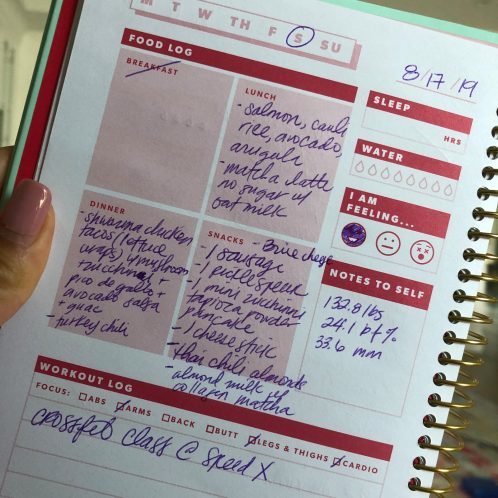 M T W TH F S SU
FOOD LOG
8/17/19
BREAKFAST
LUNCH
- salmon, cauli
rice, avocado,
arugula
- matcha latte
no sugar w/
oat milk
SLEEP
HRS
WATER
I AM
FEELING...
DINNER
- shwarma chicken
tacos (lettuce
wraps) w/ mushroom
+ zucchinis +
pico de gallo +
avocado salsa
+ guac
- turkey chili
SNACKS
- Brie cheese
- 1 sausage
- 1 pickle spear
- 1 mini zucchini
tapioca powder
pancake
- 1 cheese stick
- thai chili almonds
- almond milk w/
collagen matcha
NOTES TO SELF
132.8 lbs
24.1 bf%
33.6 mm
WORKOUT LOG
FOCUS: ABS ARMS BACK BUTT LEGS & THIGHS CARDIO
class @ speed X